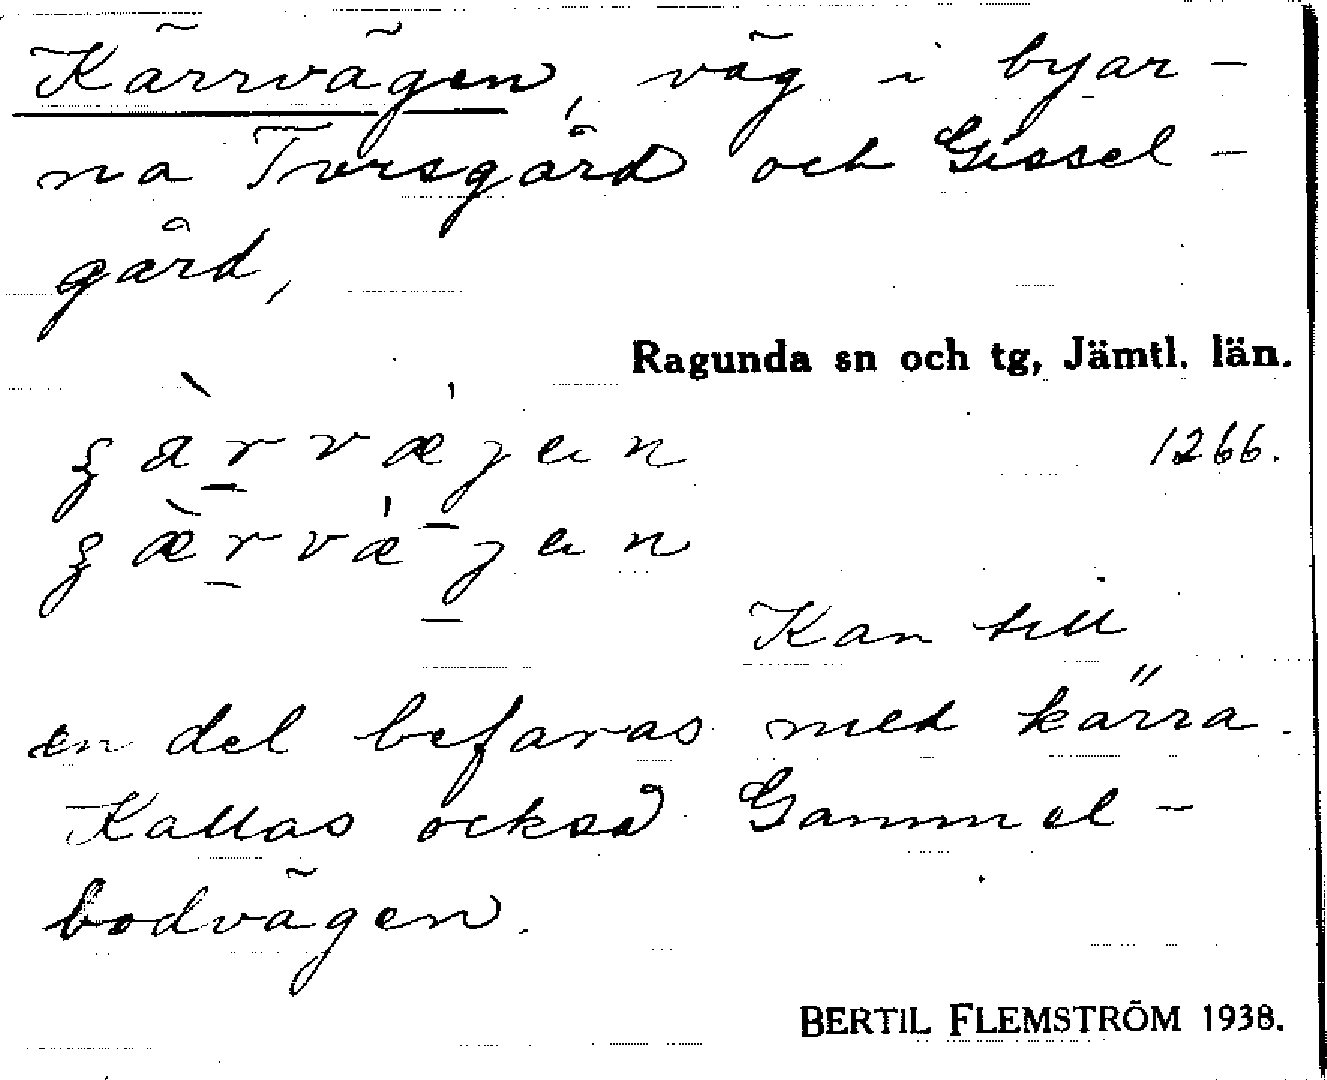 Kärrvägen, väg i byar-
na Torsgård och Gissel-
gård,
Ragunda sn och tg, Jämtl. län.
1266.
Kan till
en del befaras med kärra.
Kallas också Gammel-
bodvägen.
BERTIL FLEMSTRÖM 1938.